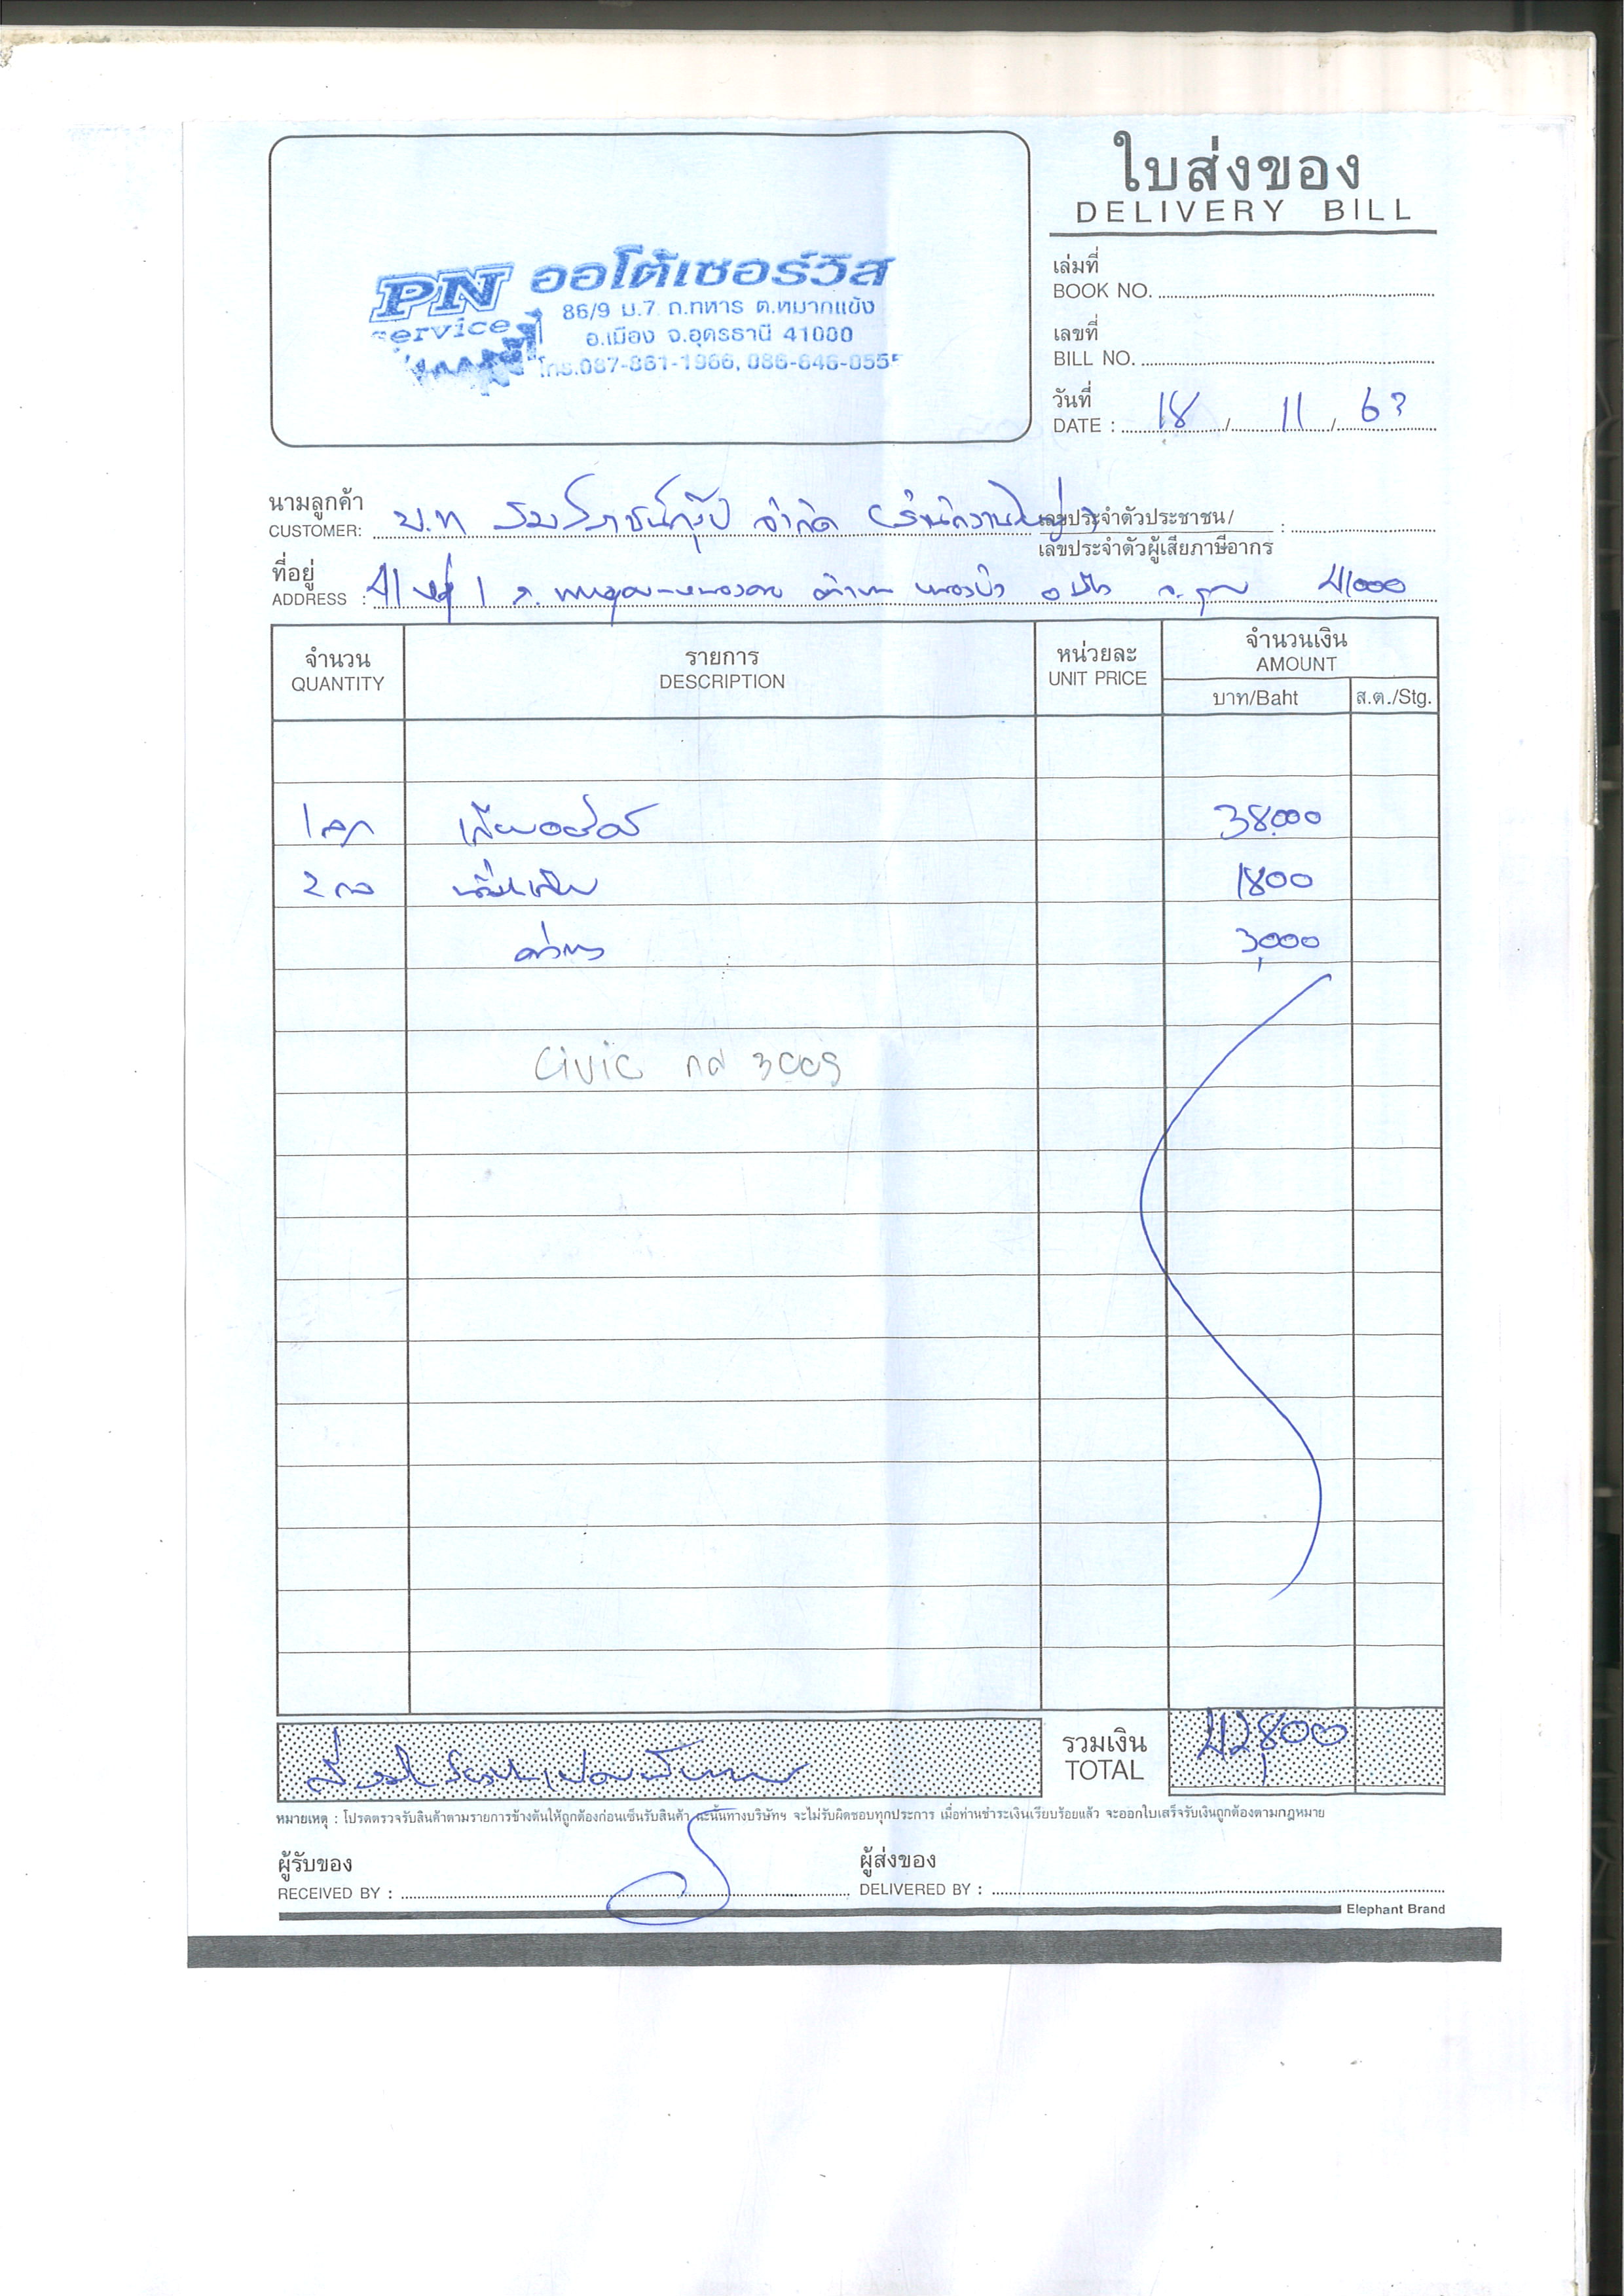 ใบส่งของ
DELIVERY BILL
PN ออโต้เซอร์วิส
service
86/9 ม.7 ถ.ทหาร ต.หมากแข้ง
อ.เมือง จ.อุดรธานี 41000
โทร.087-861-1966, 086-646-0555
เล่มที่
BOOK NO.
เลขที่
BILL NO.
วันที่
DATE : 18 / 11 / 63
นามลูกค้า
CUSTOMER: จำกัด (สำนักงานใหญ่)
เลขประจำตัวประชาชน/ :
เลขประจำตัวผู้เสียภาษีอากร
ที่อยู่
ADDRESS : 41 หมู่ 1 41000
จำนวน รายการ หน่วยละ จำนวนเงิน
QUANTITY DESCRIPTION UNIT PRICE AMOUNT
บาท/Baht ส.ต./Stg.
1 ลูก เกียร์ออโต้ 38,000
2 1800
ค่าแรง 3,000
Civic กต 3009
รวมเงิน
TOTAL 42,800
หมายเหตุ : โปรดตรวจรับสินค้าตามรายการข้างต้นให้ถูกต้องก่อนเซ็นรับสินค้า ฉะนั้นทางบริษัทฯ จะไม่รับผิดชอบทุกประการ เมื่อท่านชำระเงินเรียบร้อยแล้ว จะออกใบเสร็จรับเงินถูกต้องตามกฎหมาย
ผู้รับของ ผู้ส่งของ
RECEIVED BY : DELIVERED BY :
Elephant Brand